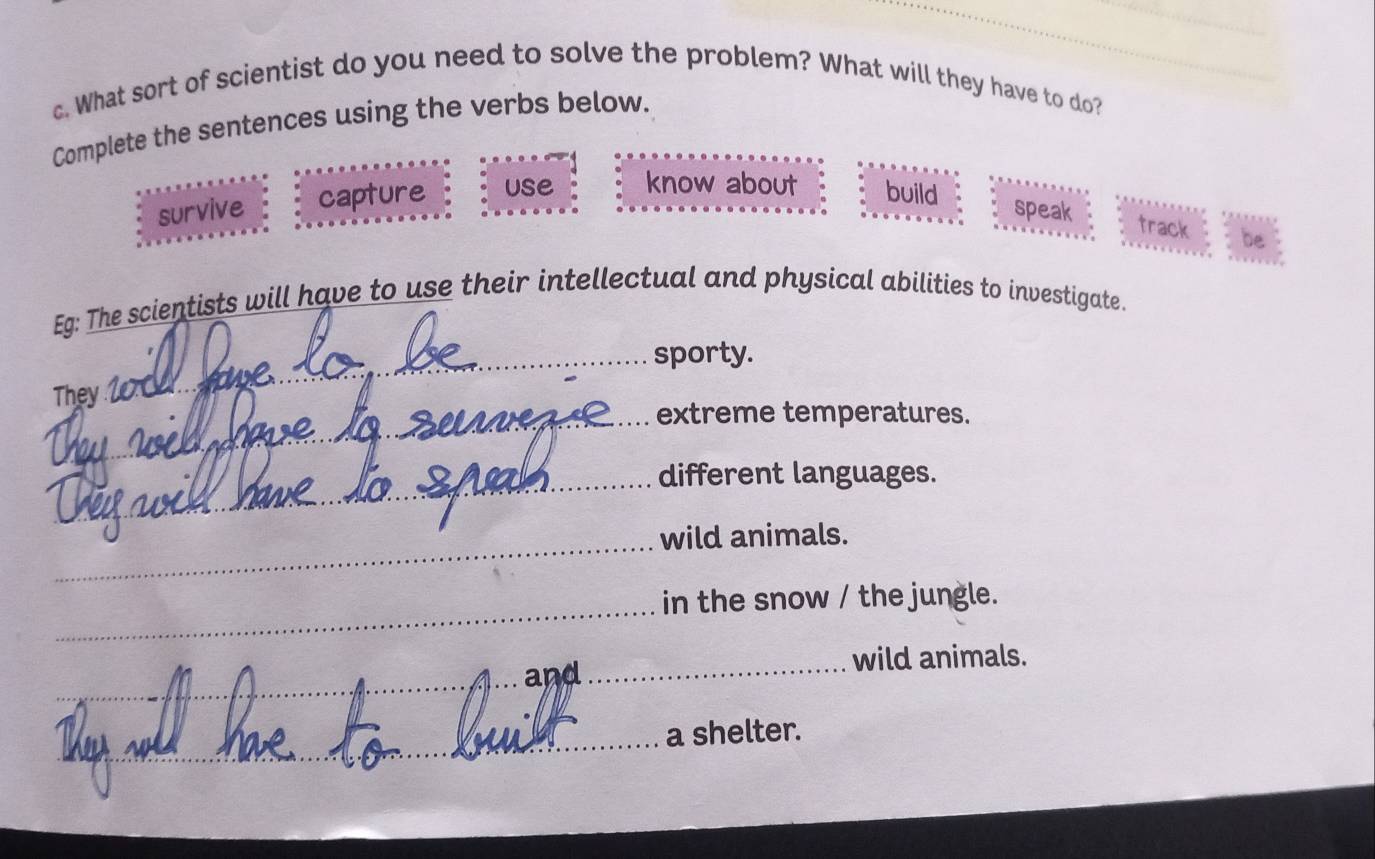 c. What sort of scientist do you need to solve the problem? What will they have to do?
Complete the sentences using the verbs below.
survive capture use know about build speak track be
Eg: The scientists will have to use their intellectual and physical abilities to investigate.
They will have to be sporty.
They will have to survive extreme temperatures.
They will have to speak different languages.
wild animals.
in the snow / the jungle.
and wild animals.
They will have to built a shelter.